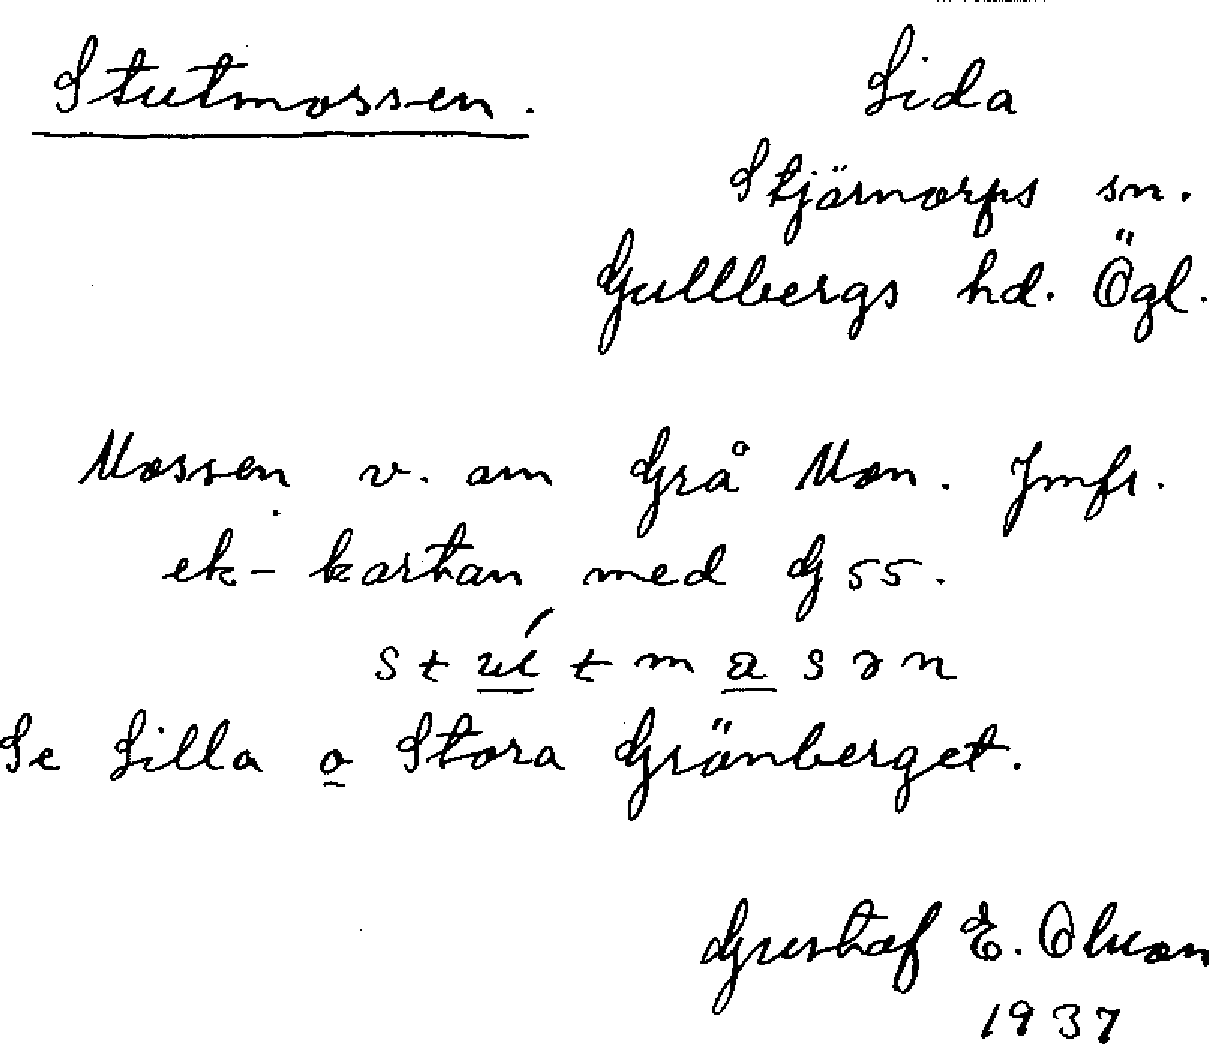 Stutmossen. Lida
Stjärnorps sn.
Gullbergs hd. Ögl.
Mossen v. om Grå Mon. Jmfr.
ek-kartan med G 55.
stútmasən
Se Lilla o Stora Grönberget.
Gustaf E. Olsson
1937